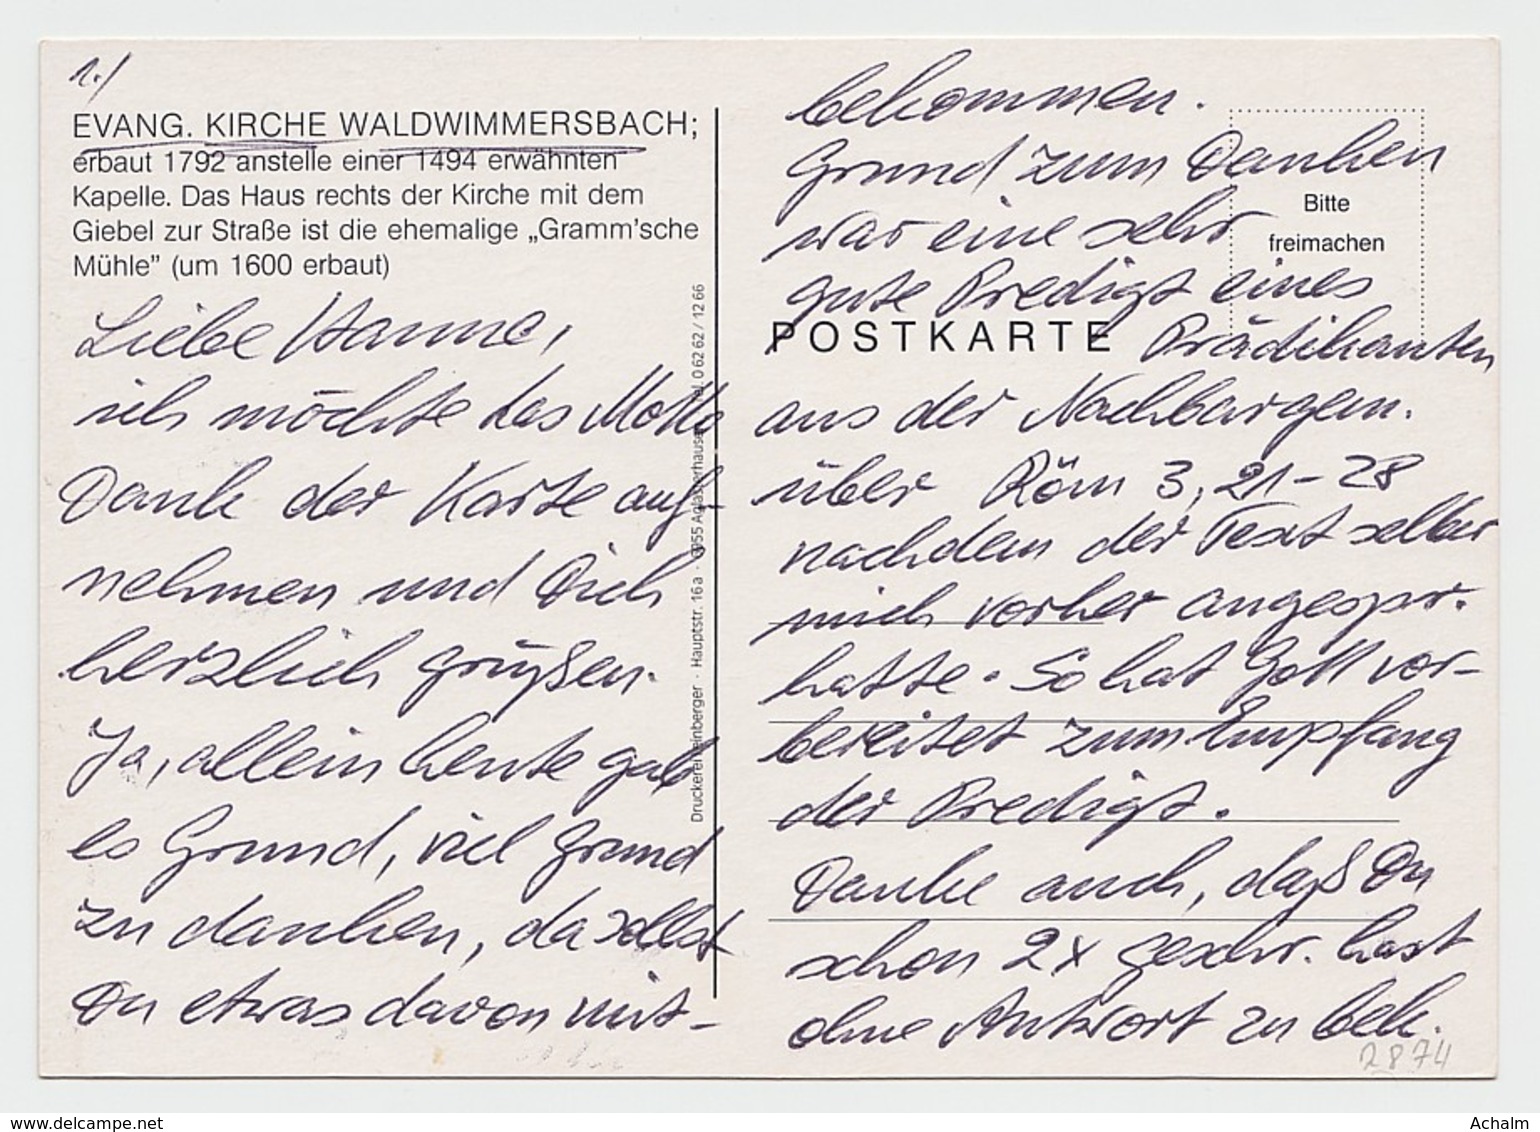 1./
EVANG. KIRCHE WALDWIMMERSBACH;
erbaut 1792 anstelle einer 1494 erwähnten
Kapelle. Das Haus rechts der Kirche mit dem
Giebel zur Straße ist die ehemalige „Gramm'sche
Mühle” (um 1600 erbaut)
Liebe Hanne,
ich möchte das Motto
Dank der Karte auf-
nehmen und Dich
herzlich grüßen.
Ja, allein heute gab
es Grund, viel Grund
zu danken, da sollst
Du etwas davon mit-
Druckerei Leinberger · Hauptstr. 16 a · 6955 Aglasterhausen · Tel. 0 62 62 / 12 66
bekommen.
Grund zum Danken
war eine sehr
gute Predigt eines
Prädikanten
aus der Nachbargem.
über Röm 3, 21-28
nachdem der Text selber
mich vorher angespr.
hatte. So hat Gott vor-
bereitet zum Empfang
der Predigt.
Danke auch, daß Du
schon 2x geschr. hast
ohne Antwort zu bek.
Bitte
freimachen
POSTKARTE
2874
www.delcampe.net
Achalm